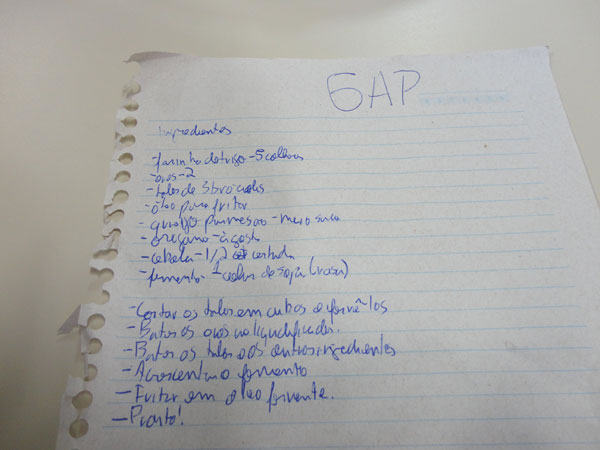 GAP
Ingredientes
-farinha de trigo - 5 colheres
-ovos - 2
-talos de 3 brócolis
-óleo para fritar
-queijo parmesão - meio saco
-orégano - à gosto
-cebola - 1/2 cortada
-fermento - 1 colher de sopa (rasa)
-Cortar os talos em cubos e fervê-los
-Bater os ovos no liquidificador.
-Bater os talos e os outros ingredientes
-Acrescentar o fermento
-Fritar em óleo fervente.
-Pronto!